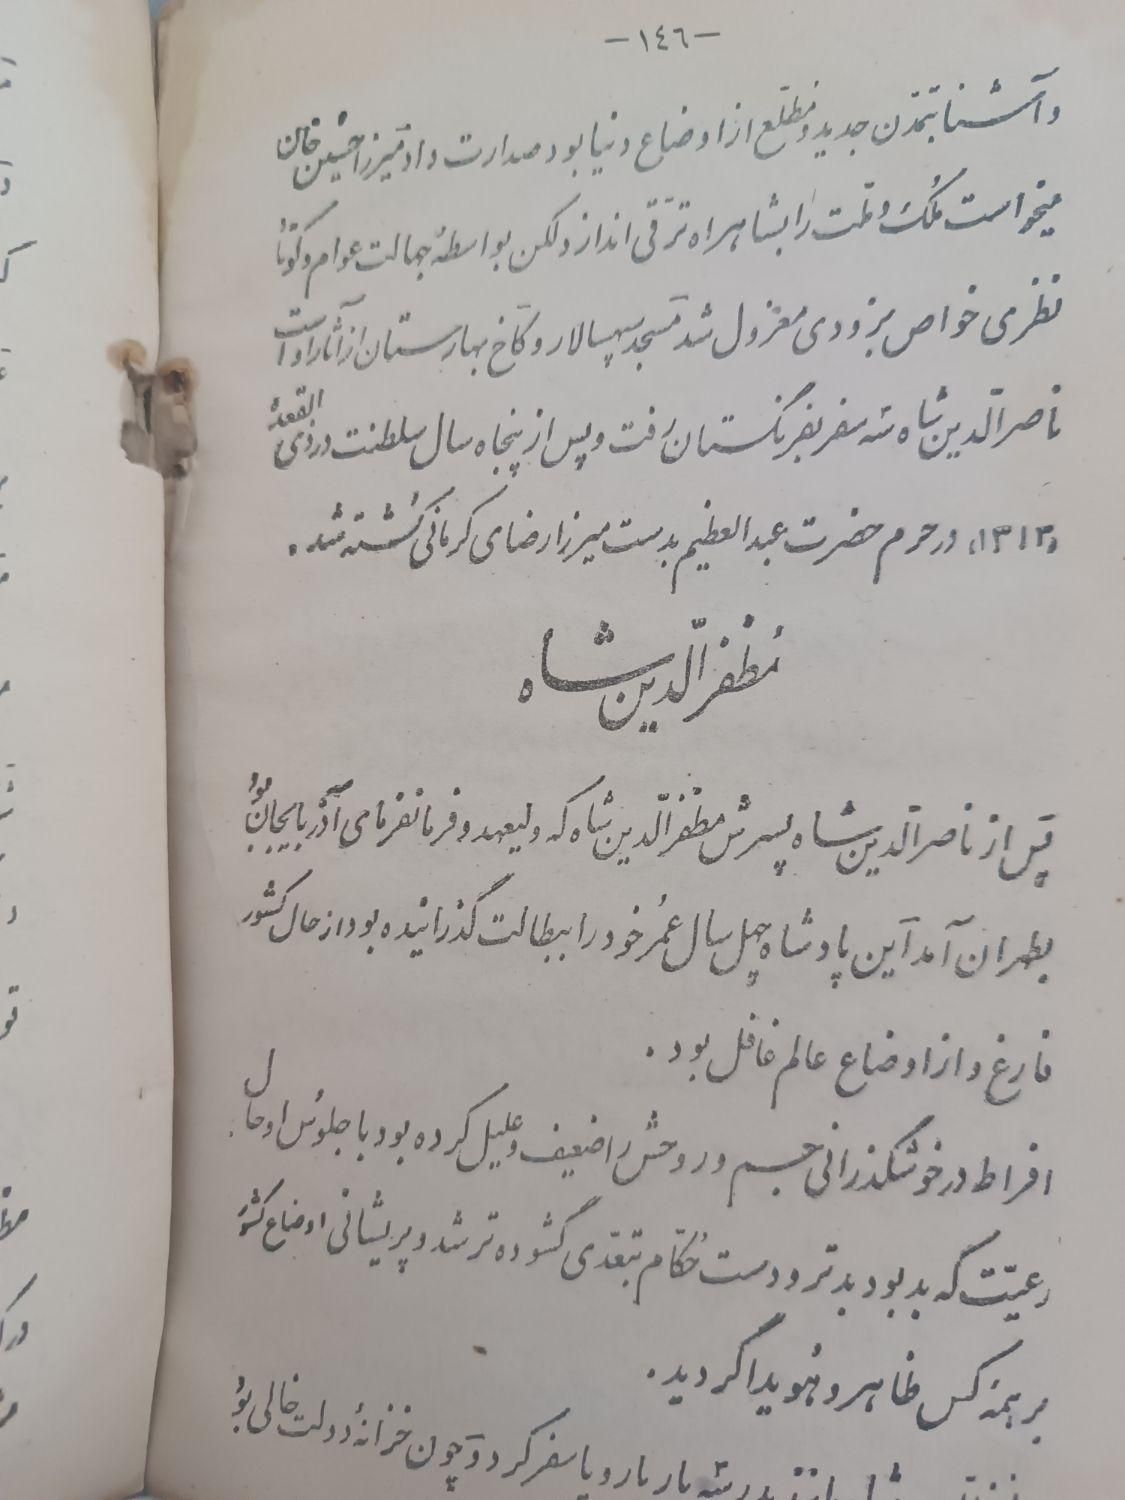 -١٤٦-
و آشنا بتمدّن جدید و مطّلع از اوضاع دنیا بود صدارت داد میرزا حسین خان
میخواست مُلک و ملّت را بشاهراه ترقّی اندازد لکن بواسطهٔ جهالت عوام و کوتاه
نظری خواص بزودی معزول شد مسجد سپهسالار و کاخ بهارستان از آثار او است
ناصرالدّین شاه سه سفر بفرنگستان رفت و پس از پنجاه سال سلطنت در ذی القعدهٔ
«۱۳۱۳» در حرم حضرت عبدالعظیم بدست میرزا رضای کرمانی کُشته شد.
مُظفّرالّدین شاه
پس از ناصرالدّین شاه پسرش مظفّرالدّین شاه که ولیعهد و فرمانفرمای آذربایجان بود
بطهران آمد این پادشاه چهل سال عُمر خود را ببطالت گذرانیده بود از حال کشور
فارغ و از اوضاع عالم غافل بود.
افراط در خوشگذرانی جسم و روحش را ضعیف و علیل کرده بود با جلوُس او حال
رعیّت که بد بود بدتر و دست حُکّام بتعدّی گشوده تر شد و پریشانی اوضاع کشور
بر همه کس ظاهر و هُویدا گردید.
شاه سه بار باروپا سفر کرد و چون خزانهٔ دولت خالی بوُد